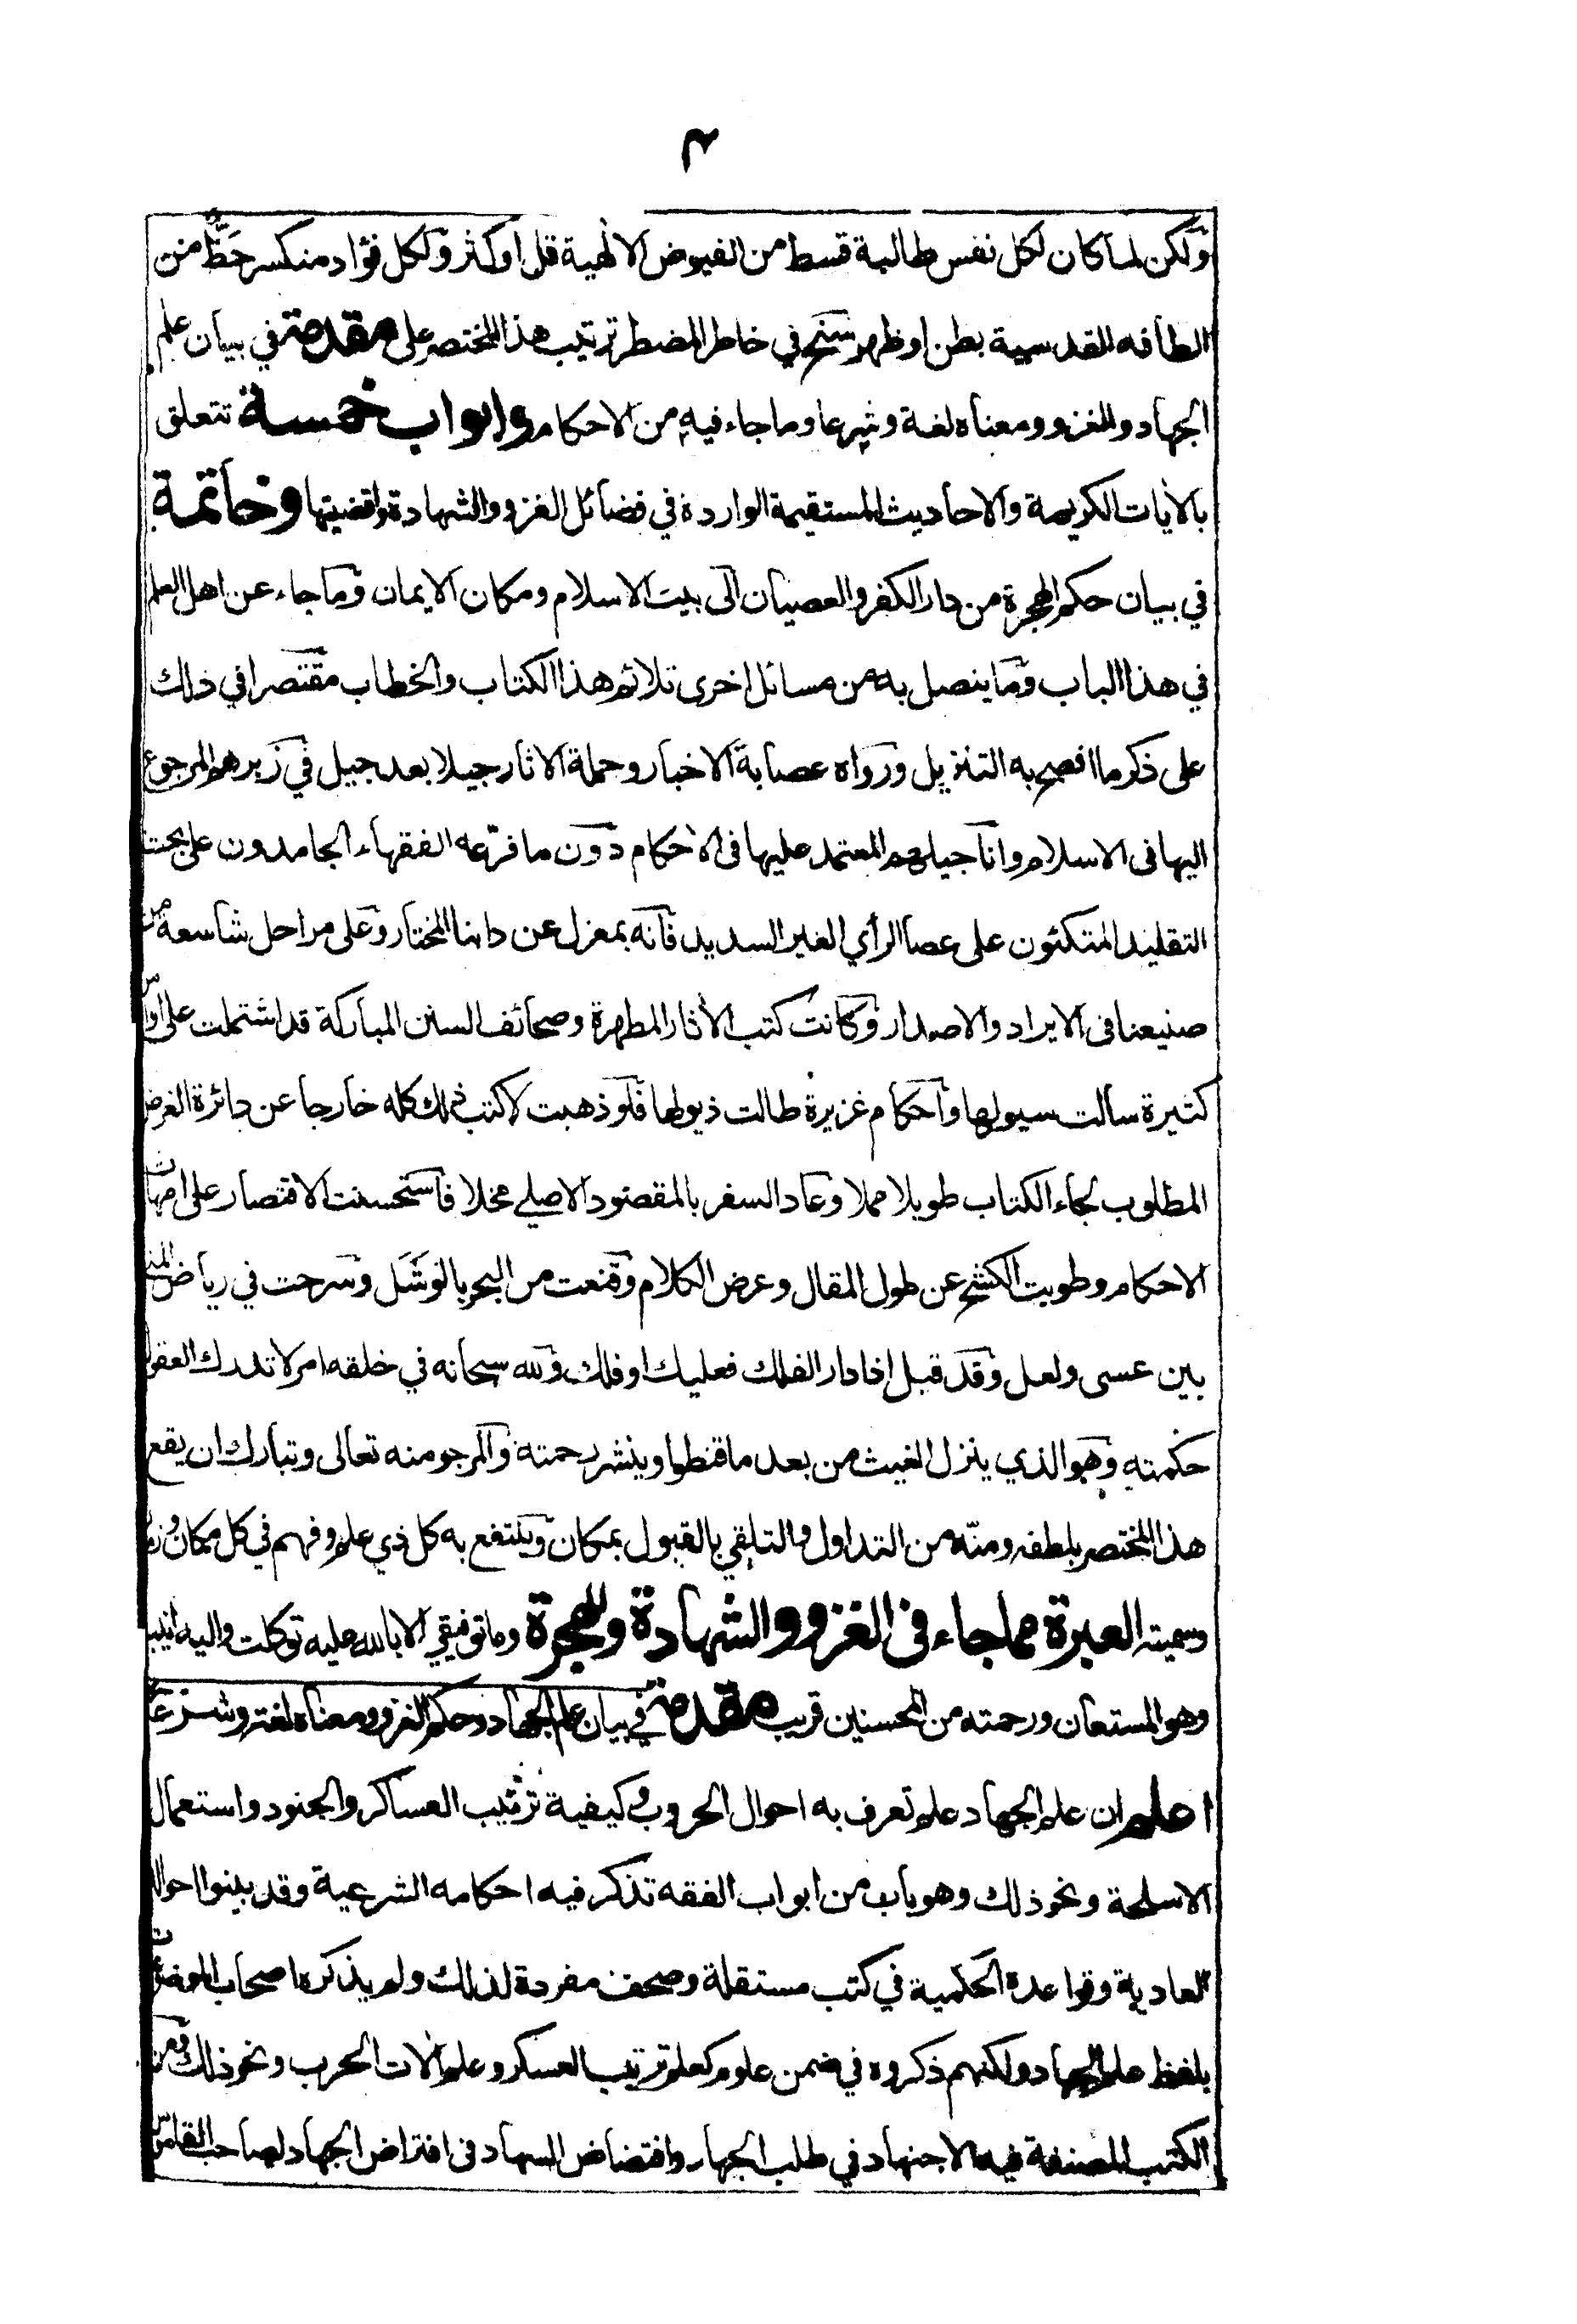 ٣
ولكن لما كان لكل نفس طالبة قسط من الفيوض الالهية قل او كثر ولكل فؤاد منكسر حظ من
الطافه القدسية بطن او ظهر سنح في خاطر المضطر ترتيب هذا المختصر على مقدمة في بيان علم
الجهاد والغزو ومعناه لغة وشرعا وما جاء فيه من الاحكام وابواب خمسة تتعلق
بالأيات الكريمة والاحاديث المستقيمة الواردة في فضائل الغزو والشهادة واقضيتها وخاتمة
في بيان حكم الهجرة من دار الكفر والعصيان الى بيت الاسلام ومكان الايمان وما جاء عن اهل العلم
في هذا الباب وما يتصل به من مسائل اخرى تلائم هذا الكتاب والخطاب مقتصرا في ذلك
على ذكر ما افصح به التنزيل ورواه عصابة الاخبار وحملة الاثار جيلا بعد جيل في زبرهم المرجوع
اليها في الاسلام واناجيلهم المعتمد عليها في الاحكام دون ما فرّعه الفقهاء الجامدون على بحت
التقليد المتكئون على عصا الرأي الغير السديد فانه بمعزل عن دابنا المختار وعلى مراحل شاسعة من
صنيعنا في الايراد والاصدار وكانت كتب الأثار المطهرة وصحائف السنن المباركة قد اشتملت على اوامر
كثيرة سالت سيولها واحكام غزيرة طالت ذيولها فلو ذهبت لاكتب ذلك كله خارجا عن دائرة الغرض
المطلوب لجاء الكتاب طويلا مملا وعاد السفر بالمقصود الاصلي مخلا فاستحسنت الاقتصار على امهات
الاحكام وطويت الكشح عن طول المقال وعرض الكلام وقنعت من البحر بالوشل وسرحت في رياض المنى
بين عسى ولعل وقد قيل اذا دار الفلك فعليك او فلك ولله سبحانه في خلقه امر لا تدرك العقول
حكمته وهو الذي ينزل الغيث من بعد ما قنطوا وينشر رحمته والمرجو منه تعالى وتبارك ان يقع
هذا المختصر بلطفه ومنّه من التداول والتلقي بالقبول بمكان وينتفع به كل ذي علم وفهم في كل مكان وزمان
وسميته العبرة مما جاء في الغزو والشهادة والهجرة وما توفيقي الا بالله عليه توكلت واليه انيب
وهو المستعان ورحمته من المحسنين قريب مقدمة في بيان علم الجهاد وحكم الغزو ومعناه لغة وشرعا
اعلم ان علم الجهاد علم تعرف به احوال الحروب وكيفية ترتيب العساكر والجنود واستعمال
الاسلحة ونحو ذلك وهو باب من ابواب الفقه تذكر فيه احكامه الشرعية وقد بينوا احواله
العادية وقواعده الحكمية في كتب مستقلة وصحف مفردة لذلك ولم يذكره اصحاب الموضوعات
بلفظ علم الجهاد ولكنهم ذكروه في ضمن علوم كعلم ترتيب العسكر وعلم الات الحرب ونحو ذلك ومن
الكتب المصنفة فيه الاجتهاد في طلب الجهاد وافتضاض السهاد في افتراض الجهاد لصاحب القاموس